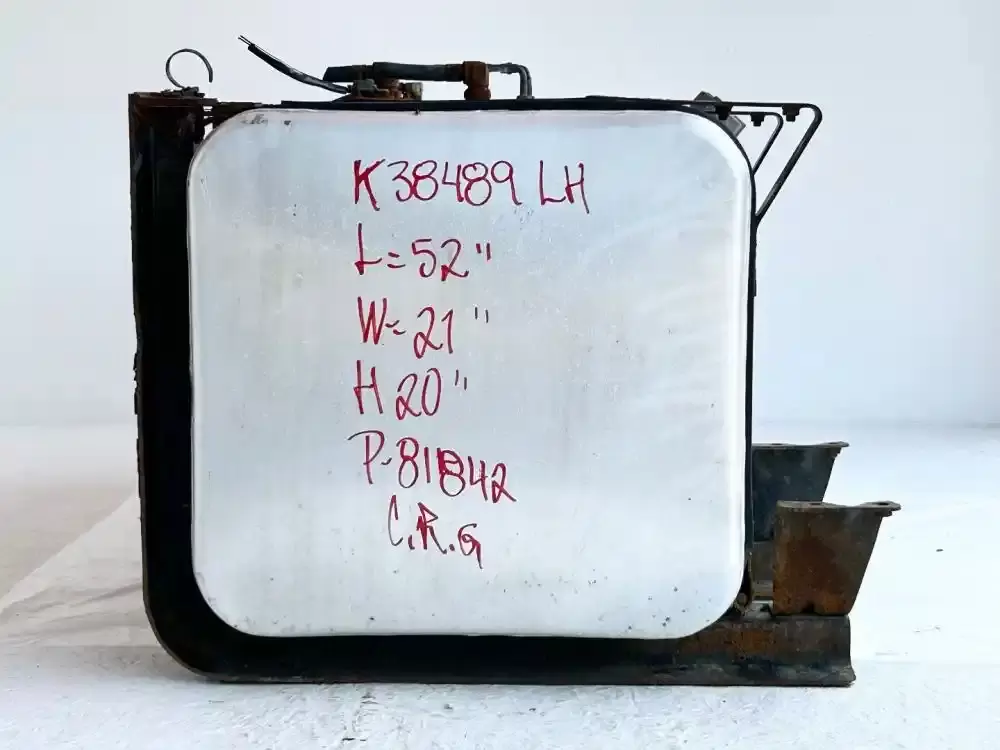 K38489 LH
L=52"
W=21"
H 20"
P-81842
C.R.G